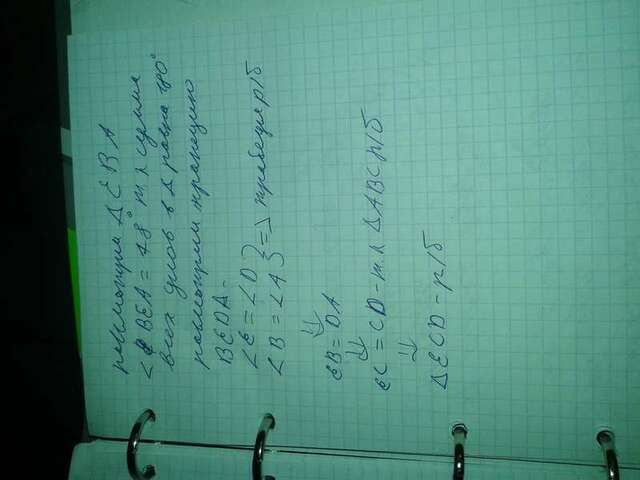 рассмотрим Δ E B A
∠ BEA = 48° т.к сумма
всех углов в Δ равна 180°
рассмотрим трапецию
BEDA -
∠E = ∠D } => трапеция р/б
∠B = ∠A }
⇓
EB = DA
⇓
EC = CD - т.к Δ ABC р/б
⇓
Δ ECD - р/б